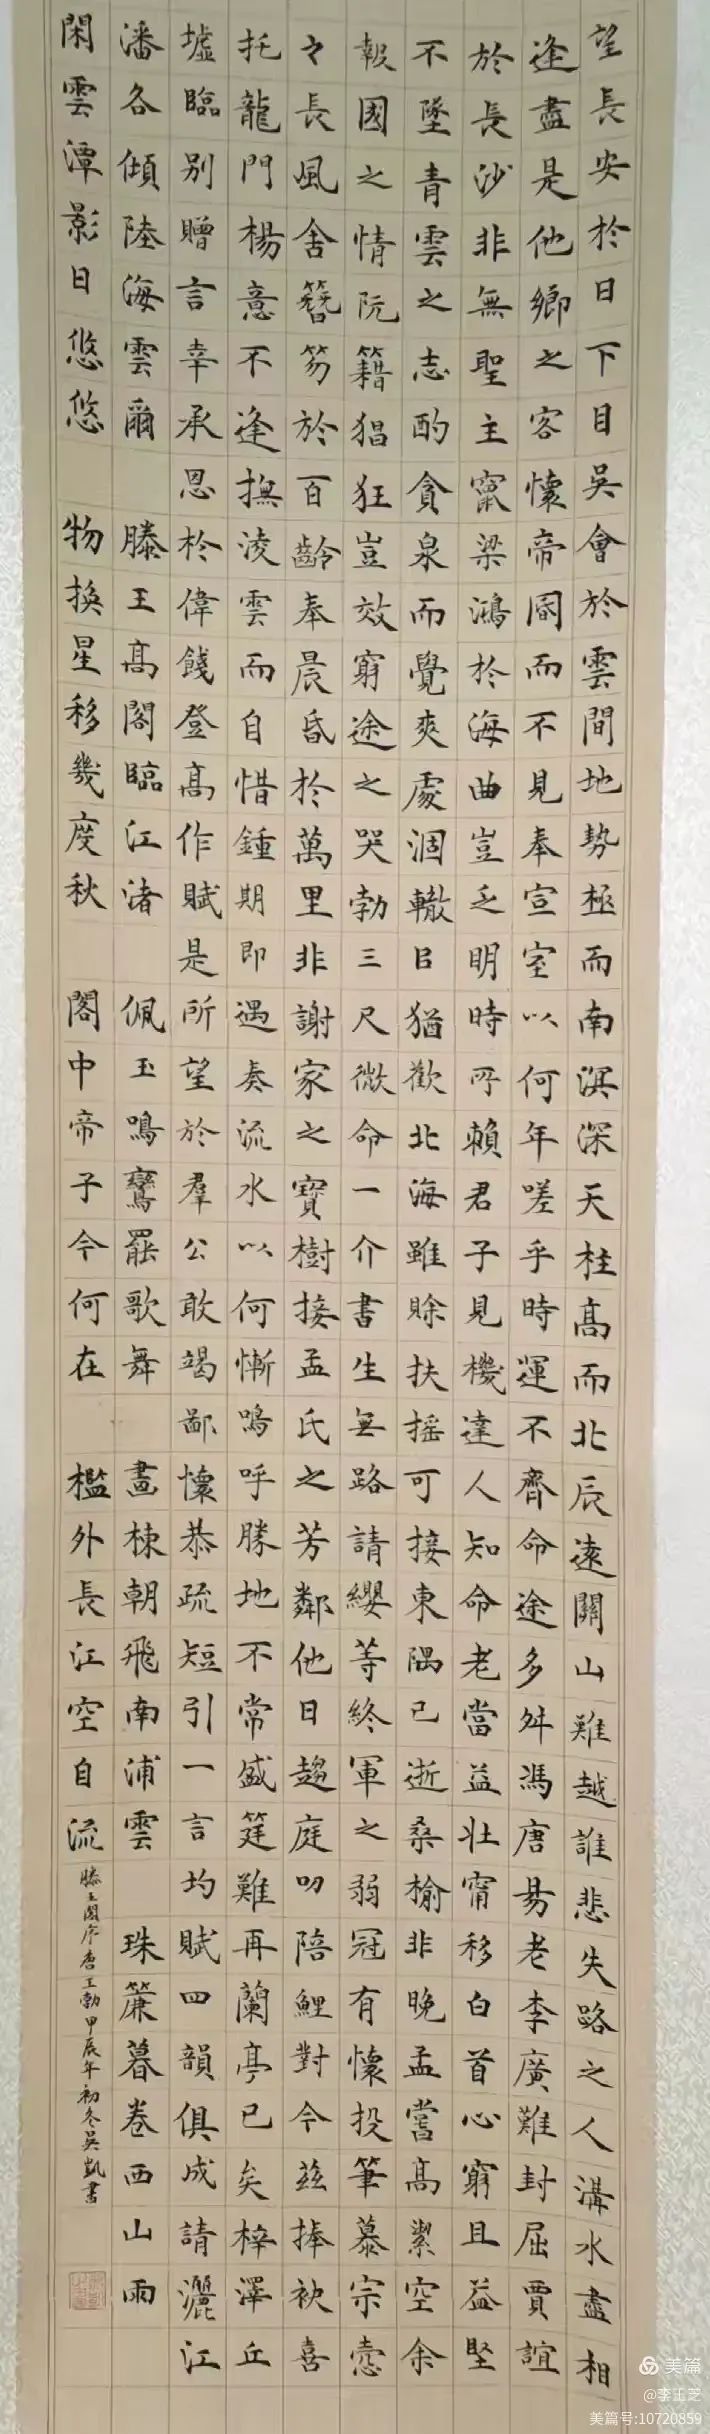 望長安於日下目吳會於雲間地勢極而南溟深天柱高而北辰遠關山難越誰悲失路之人溝水盡相
逢盡是他鄉之客懷帝閽而不見奉宣室以何年嗟乎時運不齊命途多舛馮唐易老李廣難封屈賈誼
於長沙非無聖主竄梁鴻於海曲豈乏明時所賴君子見機達人知命老當益壯甯移白首心窮且益堅
不墜青雲之志酌貪泉而覺爽處涸轍以猶歡北海雖賒扶搖可接東隅已逝桑榆非晚孟嘗高絜空余
報國之情阮籍猖狂豈效窮途之哭勃三尺微命一介書生無路請纓等終軍之弱冠有懷投筆慕宗愨
之長風舍簪笏於百齡奉晨昏於萬里非謝家之寶樹接孟氏之芳鄰他日趨庭叨陪鯉對今茲捧袂喜
托龍門楊意不逢撫淩雲而自惜鍾期即遇奏流水以何慚嗚呼勝地不常盛筵難再蘭亭已矣梓澤丘
墟臨別贈言幸承恩於偉餞登高作賦是所望於群公敢竭鄙懷恭疏短引一言均賦四韻俱成請灑江
潘各傾陸海雲爾 滕王高閣臨江渚 佩玉鳴鸞罷歌舞 畫棟朝飛南浦雲 珠簾暮卷西山雨
閑雲潭影日悠悠 物換星移幾度秋 閣中帝子今何在 檻外長江空自流
滕王閣序唐王勃甲辰年初冬吳凱書
美篇
@李玉芝
美篇号:10720859